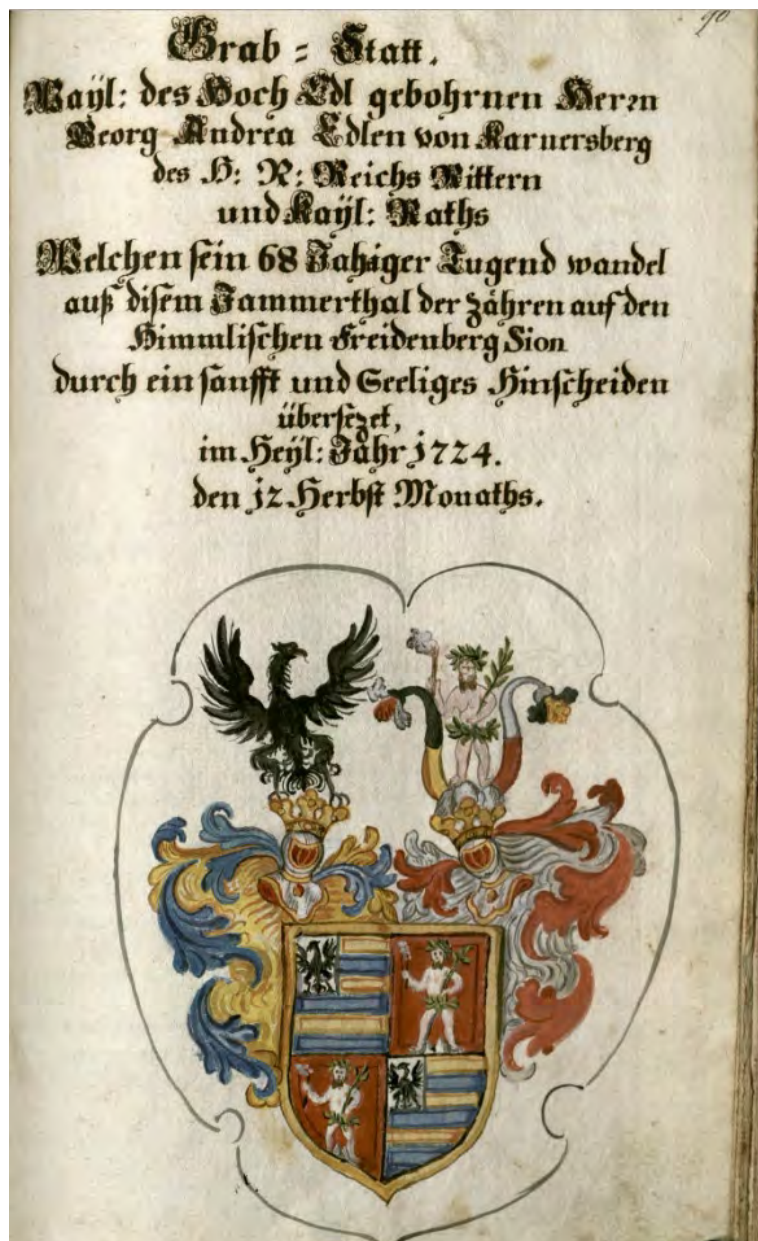 90
Grab = Statt.
Wayl: des Hoch Edl gebohrnen Herrn
Georg Andrea Edlen von Karnersberg
des H: R: Reichs Rittern
und Kayl: Raths
Welchen sein 68 Jahiger Tugend wandel
auß disem Jammerthal der zähren auf den
Himmlischen Freidenberg Sion
durch ein sanfft und Seeliges Hinscheiden
übersezet,
im Heyl: Jahr 1724.
den 12 Herbst Monaths.